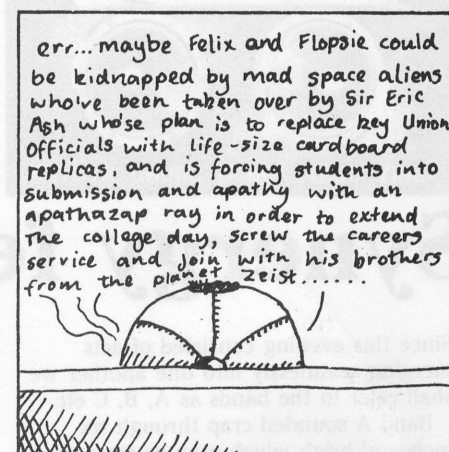 err... maybe Felix and Flopsie could
be kidnapped by mad space aliens
who've been taken over by Sir Eric
Ash who'se plan is to replace key Union
Officials with life-size cardboard
replicas, and is forcing students into
submission and apathy with an
apathazap ray in order to extend
the college day, screw the careers
service and join with his brothers
from the planet Zeist......